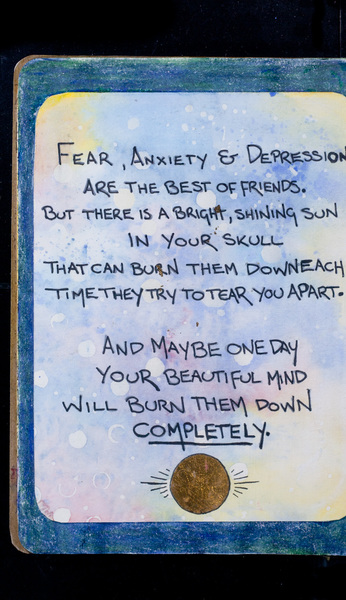 FEAR, ANXIETY & DEPRESSION
ARE THE BEST OF FRIENDS.
BUT THERE IS A BRIGHT, SHINING SUN
IN YOUR SKULL
THAT CAN BURN THEM DOWN EACH
TIME THEY TRY TO TEAR YOU APART.
AND MAYBE ONE DAY
YOUR BEAUTIFUL MIND
WILL BURN THEM DOWN
COMPLETELY.